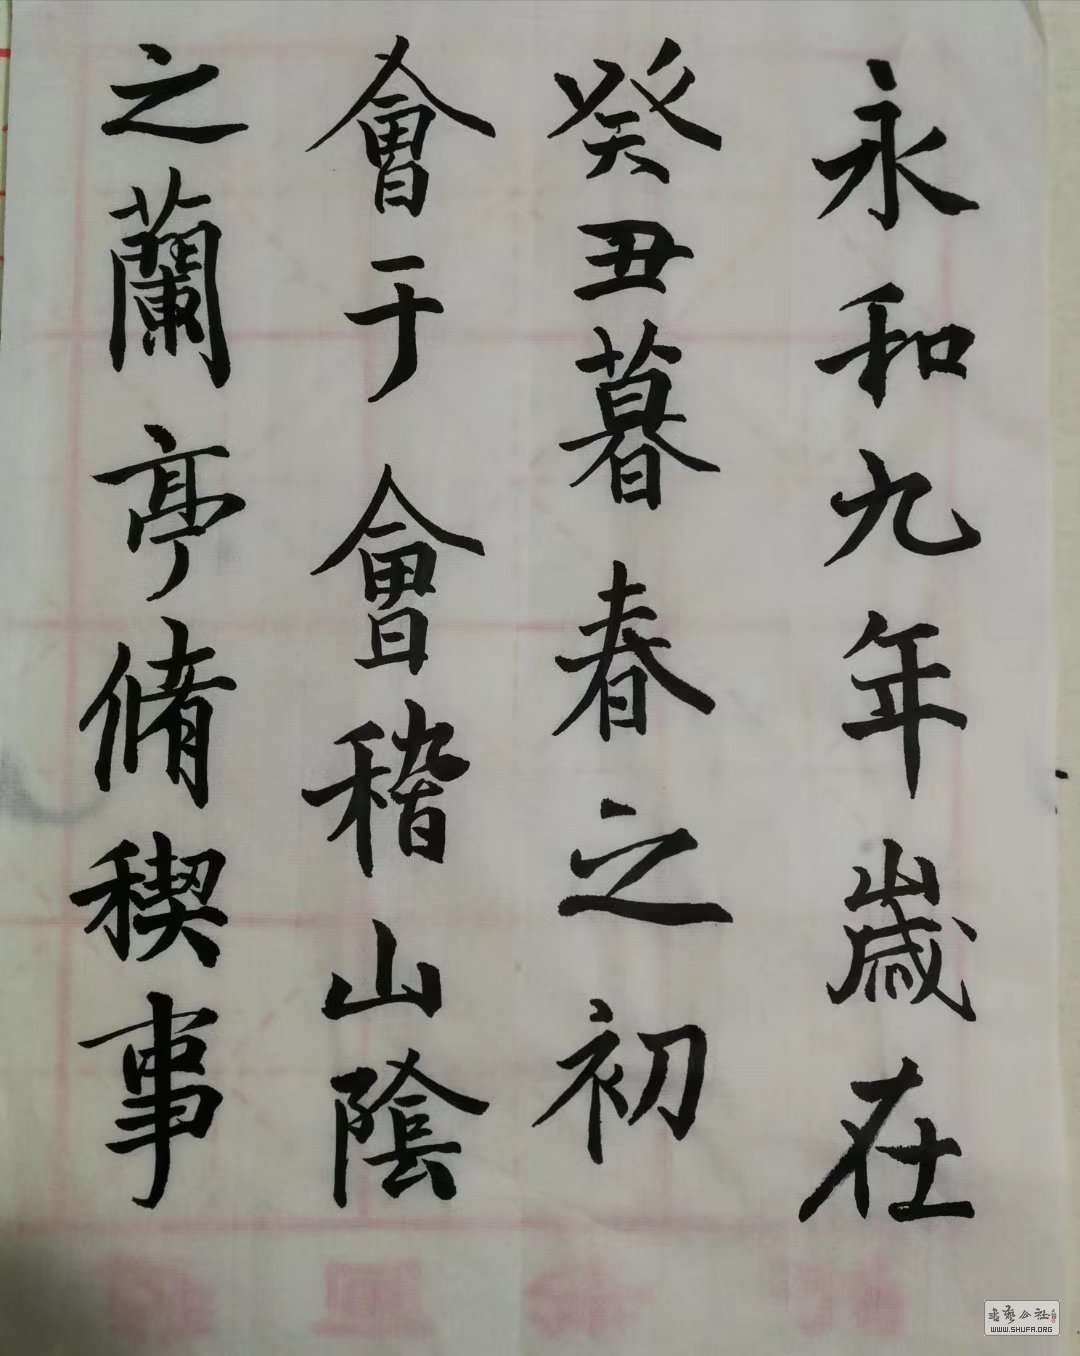 永和九年歲在
癸丑暮春之初
會于會稽山陰
之蘭亭脩稧事
WWW.SHUFA.ORG